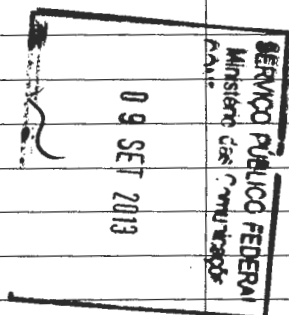 SERVIÇO PÚBLICO FEDERAL
Ministério das Comunicações
09 SET 2013